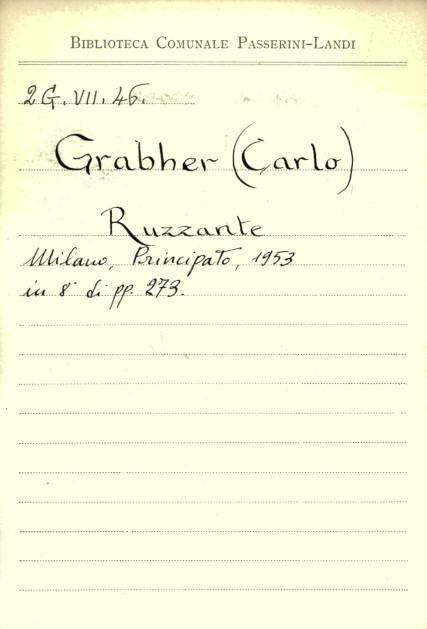 BIBLIOTECA COMUNALE PASSERINI-LANDI
2G. VII. 46.
Grabher (Carlo)
Ruzzante
Milano, Principato, 1953
in 8° di pp. 273.